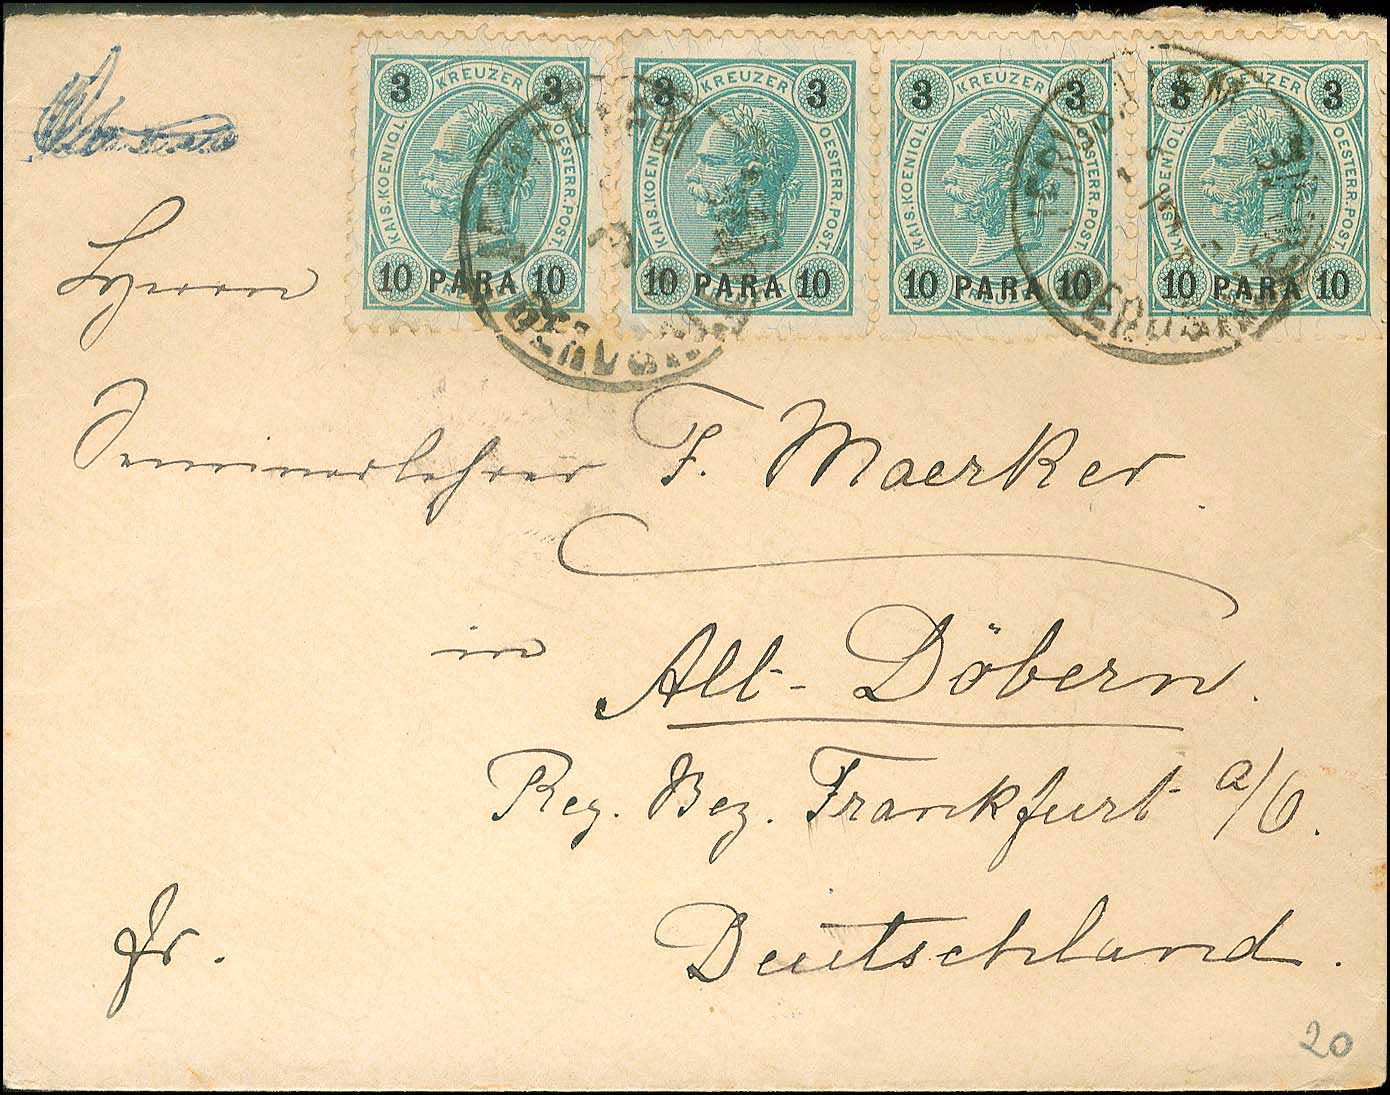 3 KREUZER 3
KAIS. KOENIGL. OESTERR. POST.
10 PARA 10
3 KREUZER 3
KAIS. KOENIGL. OESTERR. POST.
10 PARA 10
3 KREUZER 3
KAIS. KOENIGL. OESTERR. POST.
10 PARA 10
3 KREUZER 3
KAIS. KOENIGL. OESTERR. POST.
10 PARA 10
Herrn
Seminarlehrer F. Maerker
in Alt-Döbern.
Reg. Bez. Frankfurt a/O.
fr. Deutschland.
20